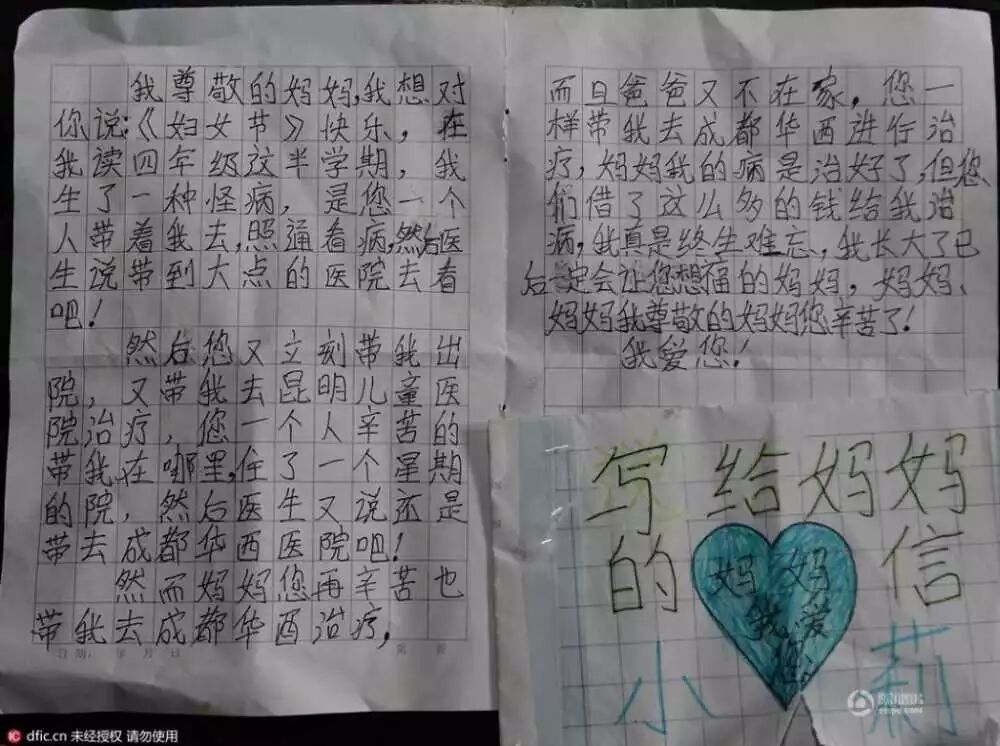 我尊敬的妈妈,我想对
你说:《妇女节》快乐，在
我读四年级这半学期，我
生了一种怪病，是您一个
人带着我去,照通看病,然后医
生说带到大点的医院去看
吧！
然后您又立刻带我出
院，又带我去昆明儿童医
院治疗，您一个人辛苦的
带我在哪里,住了一个星期
的院，然后医生又说还是
带去成都华西医院吧！
然而妈妈您再辛苦也
带我去成都华西治疗,
日期: 年 月 日
而且爸爸又不在家，您一
样带我去成都华西进行治
疗，妈妈我的病是治好了,但您
们借了这么多的钱给我治
病,我真是终生难忘、我长大了已
后一定会让您想福的妈妈，妈妈、
妈妈我尊敬的妈妈您辛苦了！
我爱您！
写给妈妈
的信
妈妈
我爱
您
小莉
dfic.cn 未经授权 请勿使用